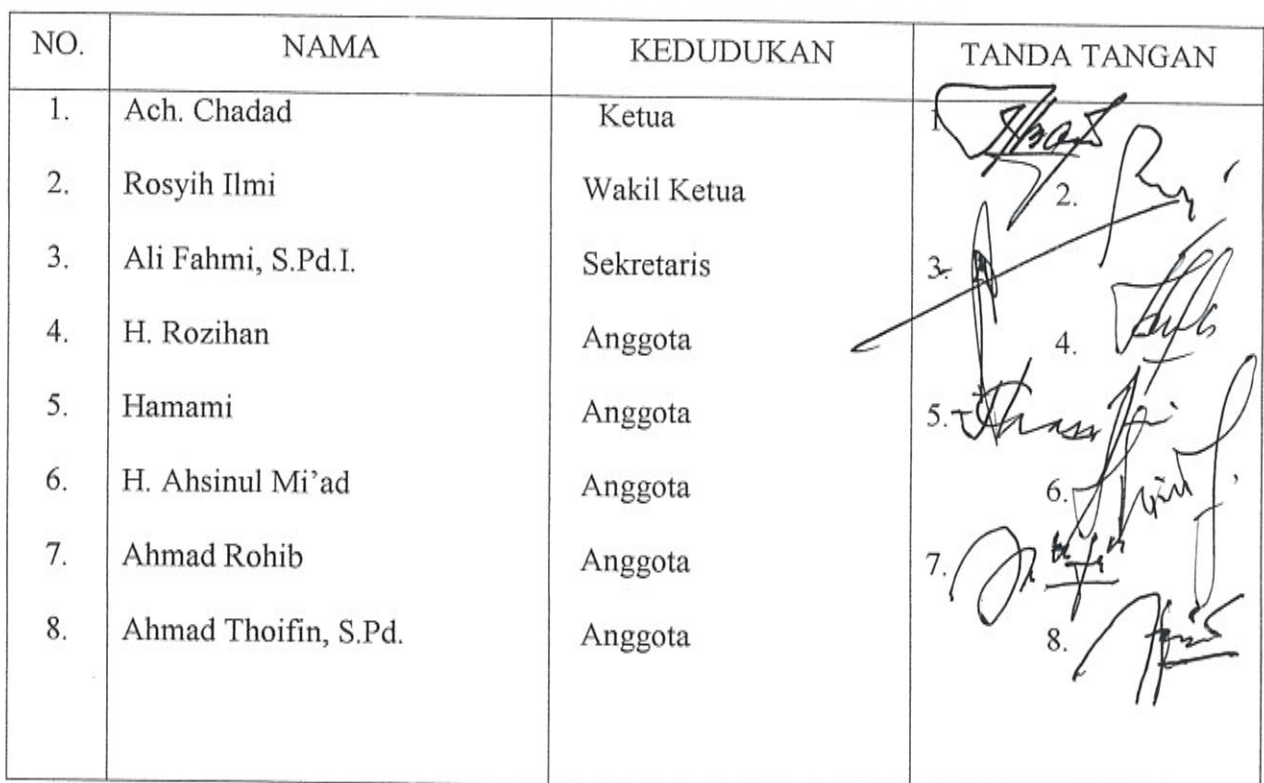 NO. NAMA KEDUDUKAN TANDA TANGAN
1. Ach. Chadad Ketua 1
2. Rosyih Ilmi Wakil Ketua 2.
3. Ali Fahmi, S.Pd.I. Sekretaris 3.
4. H. Rozihan Anggota 4.
5. Hamami Anggota 5.
6. H. Ahsinul Mi’ad Anggota 6.
7. Ahmad Rohib Anggota 7.
8. Ahmad Thoifin, S.Pd. Anggota 8.